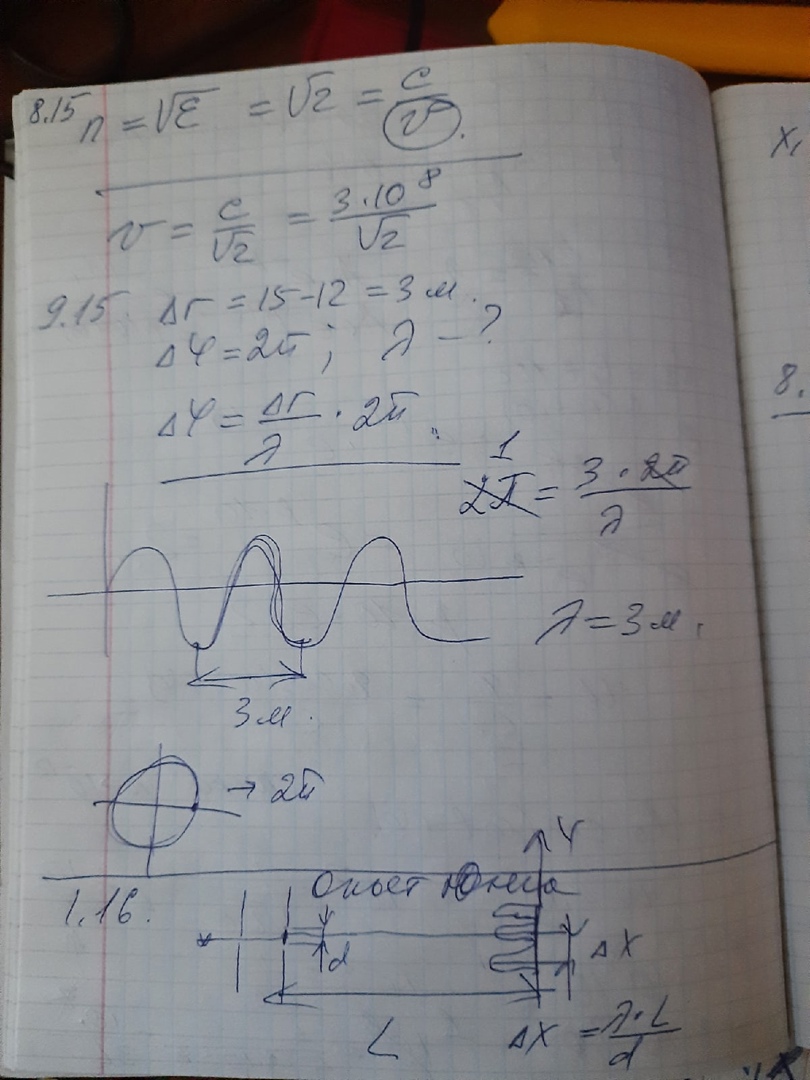 8.15 n = √ε = √2 = c/v.
v = c/√2 = 3·10⁸/√2
9.15 Δr = 15-12 = 3 м.
Δφ = 2π; λ - ?
Δφ = Δr/λ · 2π
1
2π = 3·2π/λ
λ = 3 м.
3 м.
→ 2π
Y
1.16. Опыт Юнга
d
ΔX
L
ΔX = λ·L/d
X,
8.